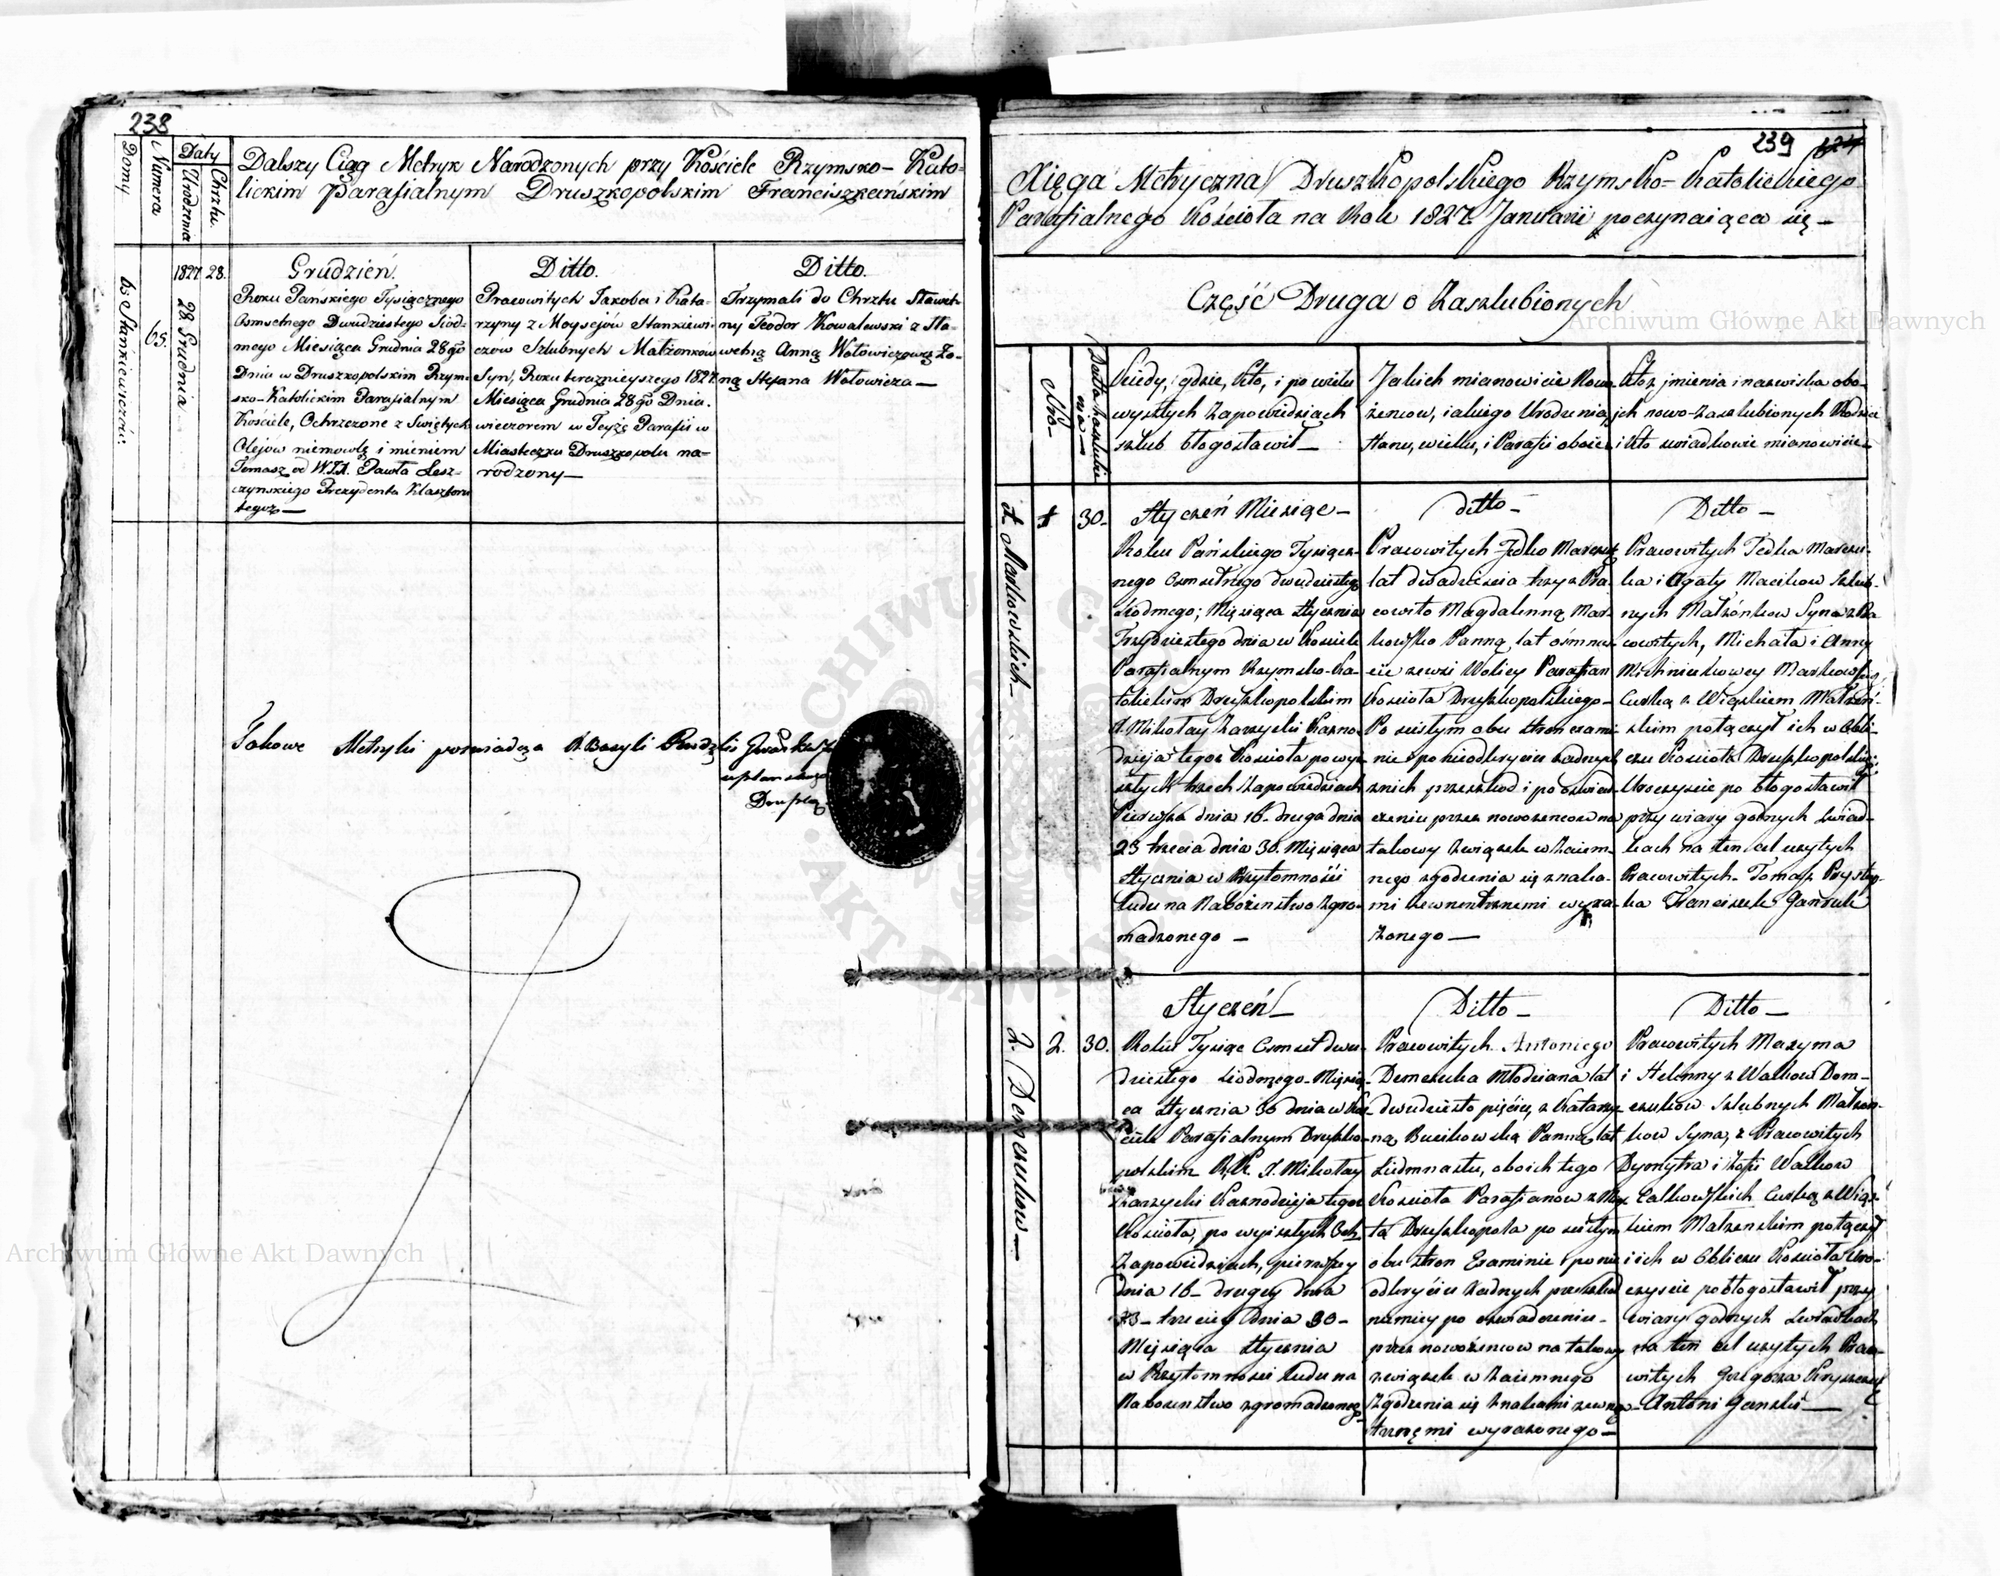 238
Domy
Numera
Daty
Urodzenia
Chrztu.
Dalszy Ciąg Metryk Narodzonych przy Kościele Rzymsko-Kato-
lickim Parafialnym Druszkopolskim Franciszkańskim
b. Stankiewiczów.
65.
1827. 28.
28 Grudnia
Grudzień.
Roku Pańskiego Tysiącznego
Osmsetnego Dwudziestego Siód-
mego Miesiąca Grudnia 28go
Dnia w Druszkopolskim Rzym-
sko-Katolickim Parafialnym
Kościele, Ochrzczone z Świętych
Olejow niemowlę imieniem
Tomasz od W.J.X. Pawła Lesz-
czynskiego Prezydenta Klasztoru
tegoż—
Ditto.
Pracowitych Jakoba i Kata-
rzyny z Moysejów Stankiewi-
czów Szlubnych Małżonków
Syn, Roku teraznieyszego 1827.
Miesiąca Grudnia 28go Dnia.
wieczorem w Teyże Parafii w
Miasteczku Druszkopolu na-
rodzony—
Ditto.
Trzymali do Chrztu Sławet-
ny Teodor Kowalewski z Sła-
wetną Anną Wołowiczową Żo-
ną Stefana Wołowicza—
Takowe Metryki poswiadcza X Bazyli
239 124
Xięga Metryczna Druszkopolskiego Rzymsko-Katolickiego
Parafialnego Kościoła na Rok 1827. Januarii poczynaiąca się—
Część Druga o Zaszlubionych
Archiwum Główne Akt Dawnych
Nro
Kiedy, gdzie, kto, i po wielu
wyszłych Zapowiedziach
szlub błogosławił—
Jakich mianowicie Nowo-
żencow, iakiego Urodzenia,
stanu, wieku, i Parafii oboie
Kto z jmienia i nazwiska obo-
jch nowo-Zaszlubionych Rodzice
i kto swiadkowie mianowicie
1. Markowskich—
1
30.
Styczeń Miesiąc—
Roku Pańskiego Tysiącz-
nego Osmsetnego dwudziestego
siodmego; Miesiąca Stycznia
Trzydziestego dnia w Kościele
Parafialnym Rzymsko-Ka-
tolickim Druszkopolskim
X Mikołay Zarzycki Kazno-
dzieja tegoż Kościoła po wy-
szłych trzech Zapowiedziach
Pierwsza dnia 16. druga dnia
23 trzecia dnia 30. Miesiąca
Stycznia w Przytomności
Ludu na Nabożenstwo Zgro-
madzonego—
ditto—
Pracowitych
lat dwadziescia trzy z Pra-
cowito Magdalenną Mar-
kowsko Panną, lat osmnas-
cie zewsi Wolicy Parafian
Kościoła Druszkopolskiego—
Po scisłym obu stron exami-
nie i po nieodkryciu zadnych
znich przeszkod i po oswiad-
czeniu przez nowozencow na
takowy Związek w Zaiem-
nego zgodzenia się znaka-
mi zewnentrznemi wyra-
żonego—
Ditto—
Pracowitych Fedka Marczu-
ka i Agaty Macikow Szlub-
nych Małżónkow Syna z Pra-
cowitych, Michała i Anny
Curką z Wiązkiem Małżeń-
skim połączył ich w Obli-
czu Kościoła Druszkopolskiego
Uroczyscie po błogosławił
przy wiary godnych Swiad-
kach na ten cel uzytych
Pracowitych- Tomasz
Franciszek
2. Demczukow—
2.
30.
Styczeń—
Roku Tysiąc Osmset dwu-
dziestego siodmego Miesią-
ca Stycznia 30 dnia w Koś-
ciele Parafialnym Druszko-
polskim X. Mikołay
Zarzycki Kaznodzieja tegoż
Kościoła, po wyiszłych 3ch
Zapowiedziach, pierwszey
dnia 16- drugey dnia
23- trzeciey Dnia 30-
Miesiąca Stycznia
w Przytomnosci Ludu na
Nabozenstwo zgromadzonego
Ditto—
Pracowitych Antoniego
Demczuka Młodziana lat
dwudziesto pięciu, z Katarzy-
ną Panną lat
siedmnastu, oboich tego
Kościoła Parafianow z Mias-
ta Druszkopola po scisłym
obu stron Examinie i po nie
odkryciu zadnych przeszkod
namiey po oswiadczeniu-
przez nowożencow na takowy
związek w Zaiemnego
Zgodzenia się Znakami zewnę-
trznęmi wyrażonego—
Ditto—
Pracowitych Maxyma
i Helenny z Walkow Dom-
czukow Szlubnych Małżon-
kow Syna, z Pracowitych
Dymytra i Zofii Walkow
Curką z Wiąz-
kiem Małzenskim połączył
i ich w Obliczu Kościoła Uro-
czyscie pobłogosławił przy
wiary godnych Swiadkach
na ten cel uzytych Praco-
witych Grzegorza
Antoni
Archiwum Główne Akt Dawnych